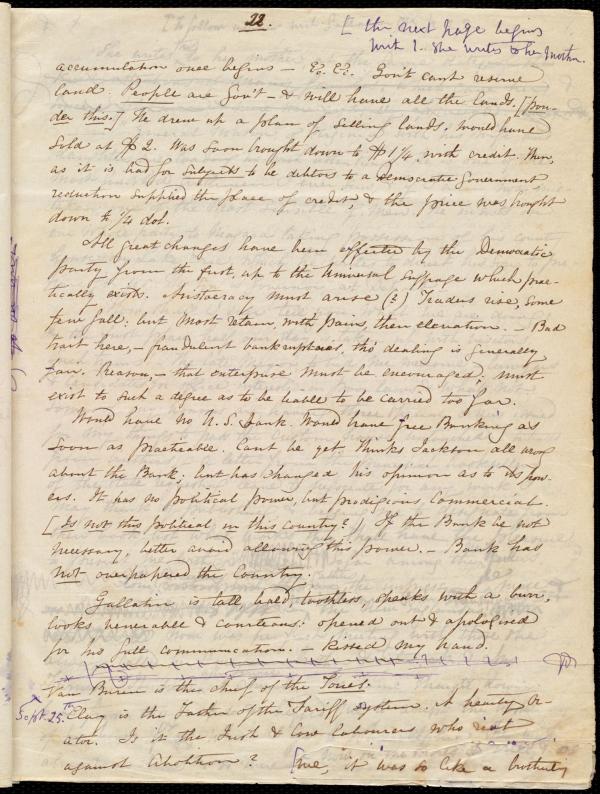 22.
[ the next page begins
with 1. She writes to her mother.
accumulation once begins – &c. &c. Gov't cant reserve
land. People are Gov't – & will have all the lands. [Pon-
der this.] He drew up a plan of selling lands. Would have
sold at $2. Was soon brought down to $1¼ with credit. Then,
as it is bad for subjects to be debtors to a Democratic Government
reduction supplied the place of credit, & the price was brought
down to ¼ dol.
All great changes have been effected by the Democratic
party, from the first, up to the Universal Suffrage which prac-
tically exists. Aristocracy must arise (?) Traders rise, some
few fall; but most retain, with pains, their elevation. – Bad
trait here, – fraudulent bankruptcies, tho' dealing is generally
fair. Reason, – that enterprise must be encouraged; must
exist to such a degree as to be liable to be carried too far.
Would have no U.S. Bank. Would have free Banking as
soon as practicable. Cant be yet. Thinks Jackson all wrong
about the Bank; but has changed his opinion as to its pow-
ers. It has no political power, but prodigious Commercial.
[Is not this political in this country?) If the Bank be not
necessary, better avoid allowing this power. – Bank has
not overpapered the Country.
Gallatin is tall bald, toothless, speaks with a burr,
looks venerable & courteous: opened out & apologised
for his full communication. – Kissed my hand.
Van Buren is the chief of the Tories.
Sept. 25th Clay is the Father of the Tariff system. A hearty Or-
ator. Is it the Irish & Low labourers who riot
against Abolition? [me, it was so like a brotherly